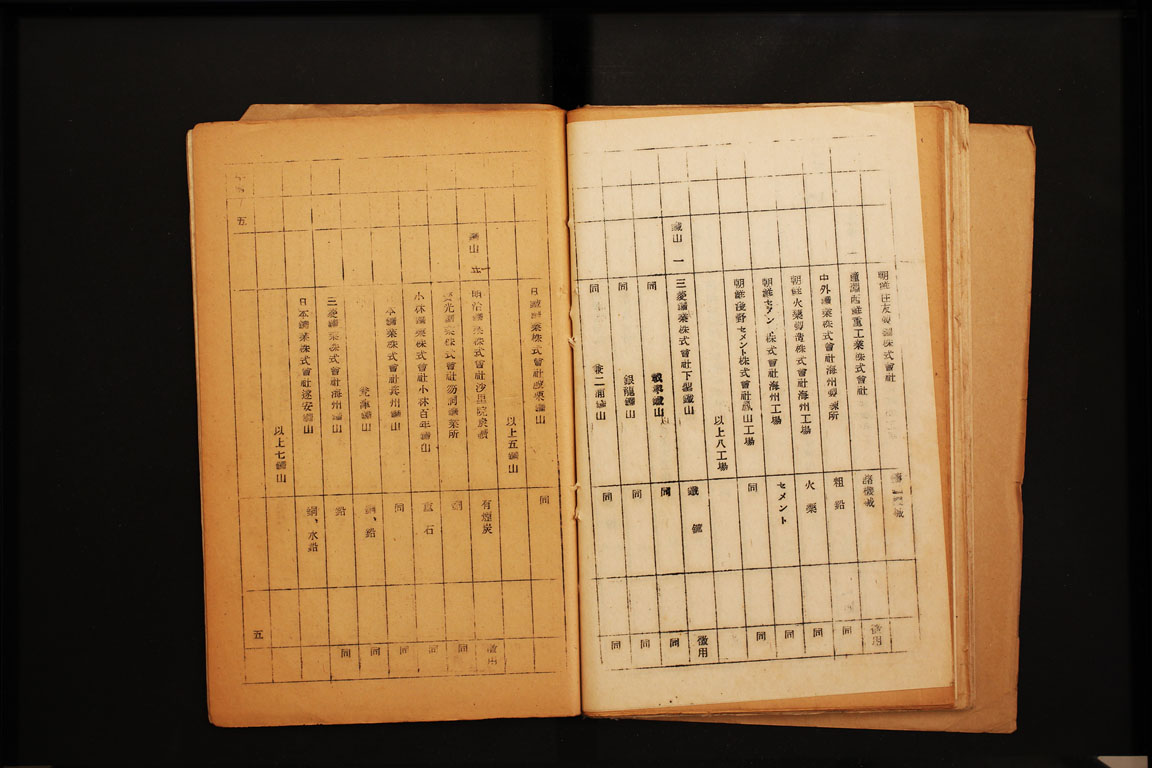 朝鮮住友製鋼株式會社
鐘淵西鮮重工業株式會社 諸機械 徴用
中外鑛業株式會社海州製錬所 粗鉛 同
朝鮮火薬製造株式會社海州工場 火薬 同
朝鮮セメント株式會社海州工場 セメント 同
朝鮮淺野セメント株式會社鳳山工場 同 同
以上八工場
鐵山 一 三菱鑛業株式會社下聖鐵山 鐵鑛 徴用
同 載寧鐵山 同 同
同 銀龍鐵山 同 同
同 兼二浦鐵山 同 同
日鐵鑛業株式會社殷栗鐵山 同
以上五鐵山
明治鑛業株式會社沙里院炭鑛 有煙炭 徴用
鑛業株式會社笏洞鑛業所 同
小林鑛業株式會社小林百年鑛山 重石 同
日本鑛業株式會社 州鑛山 同 同
鑛山 銅、鉛 同
三菱鑛業株式會社海州鑛山 鉛 同
日本鑛業株式會社遂安鑛山 銅、水鉛
以上七鑛山
五
五